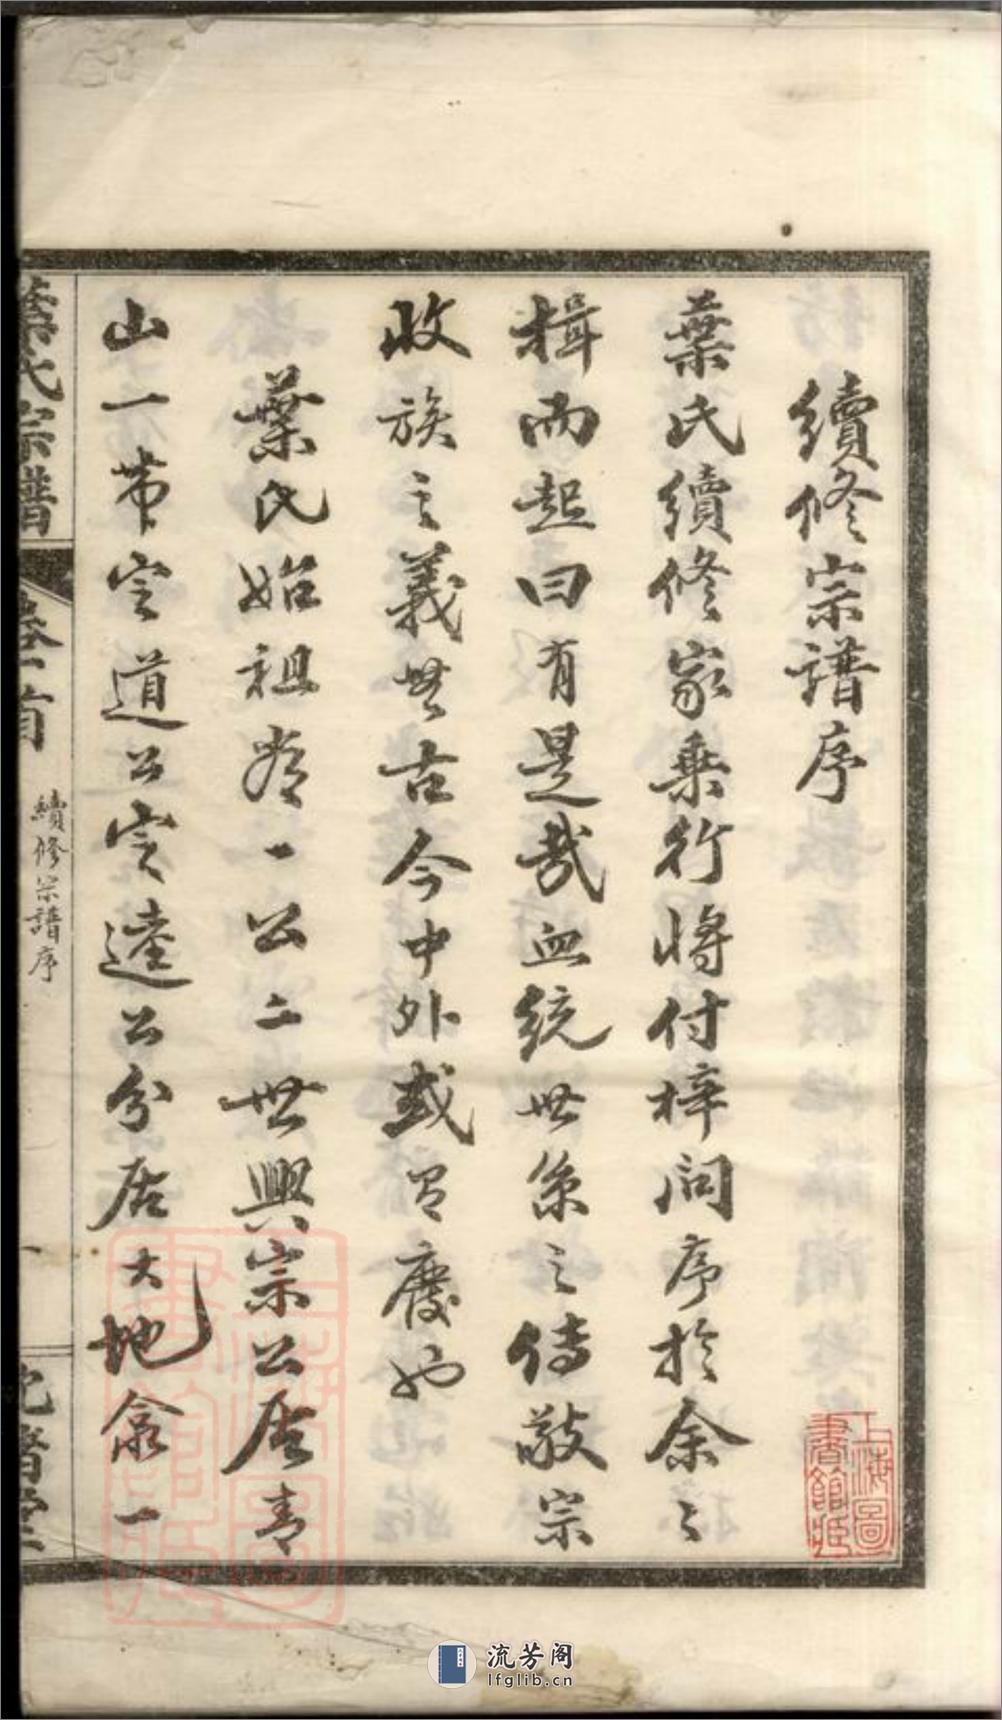 續修宗譜序
葉氏續修家乗行將付梓問序於余〻
揖而起曰有是哉血統世系之傳敬宗
收族之義無古今中外或有廢也
葉氏始祖 一公二世興宗公居青
山一帶 道公 達公分居大地 一
葉氏宗譜
卷首
續修宗譜序
一
上海圖書館藏
上海圖書館藏
流芳阁
lfglib.cn